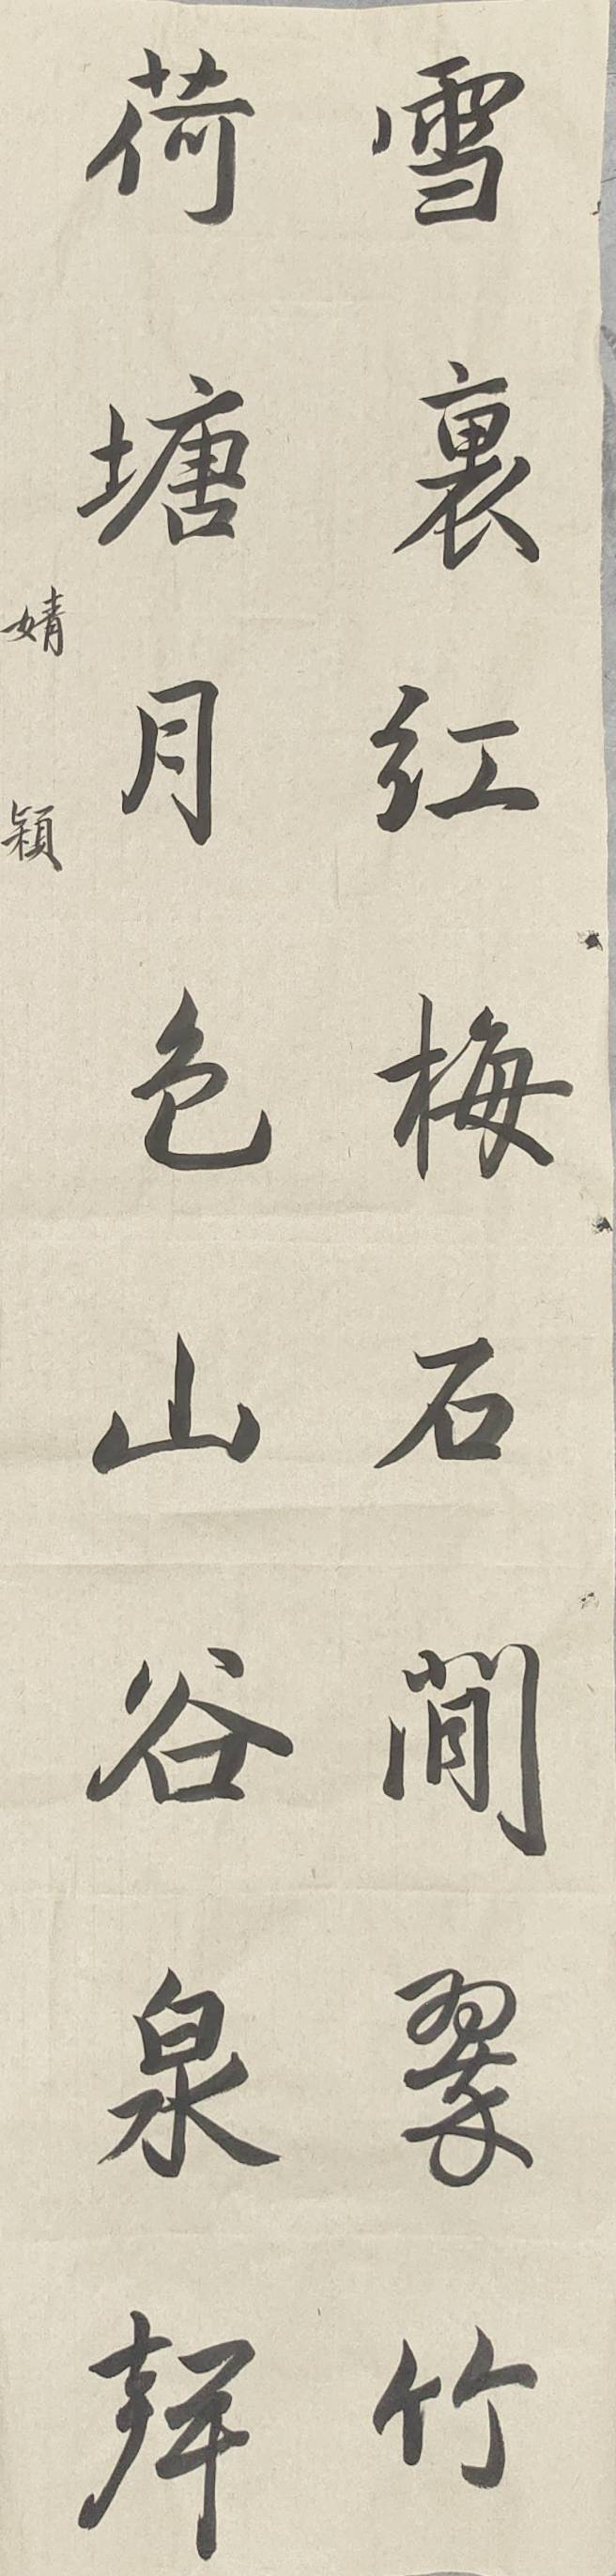 雪裏紅梅石間翠竹
荷塘月色山谷泉聲
婧穎